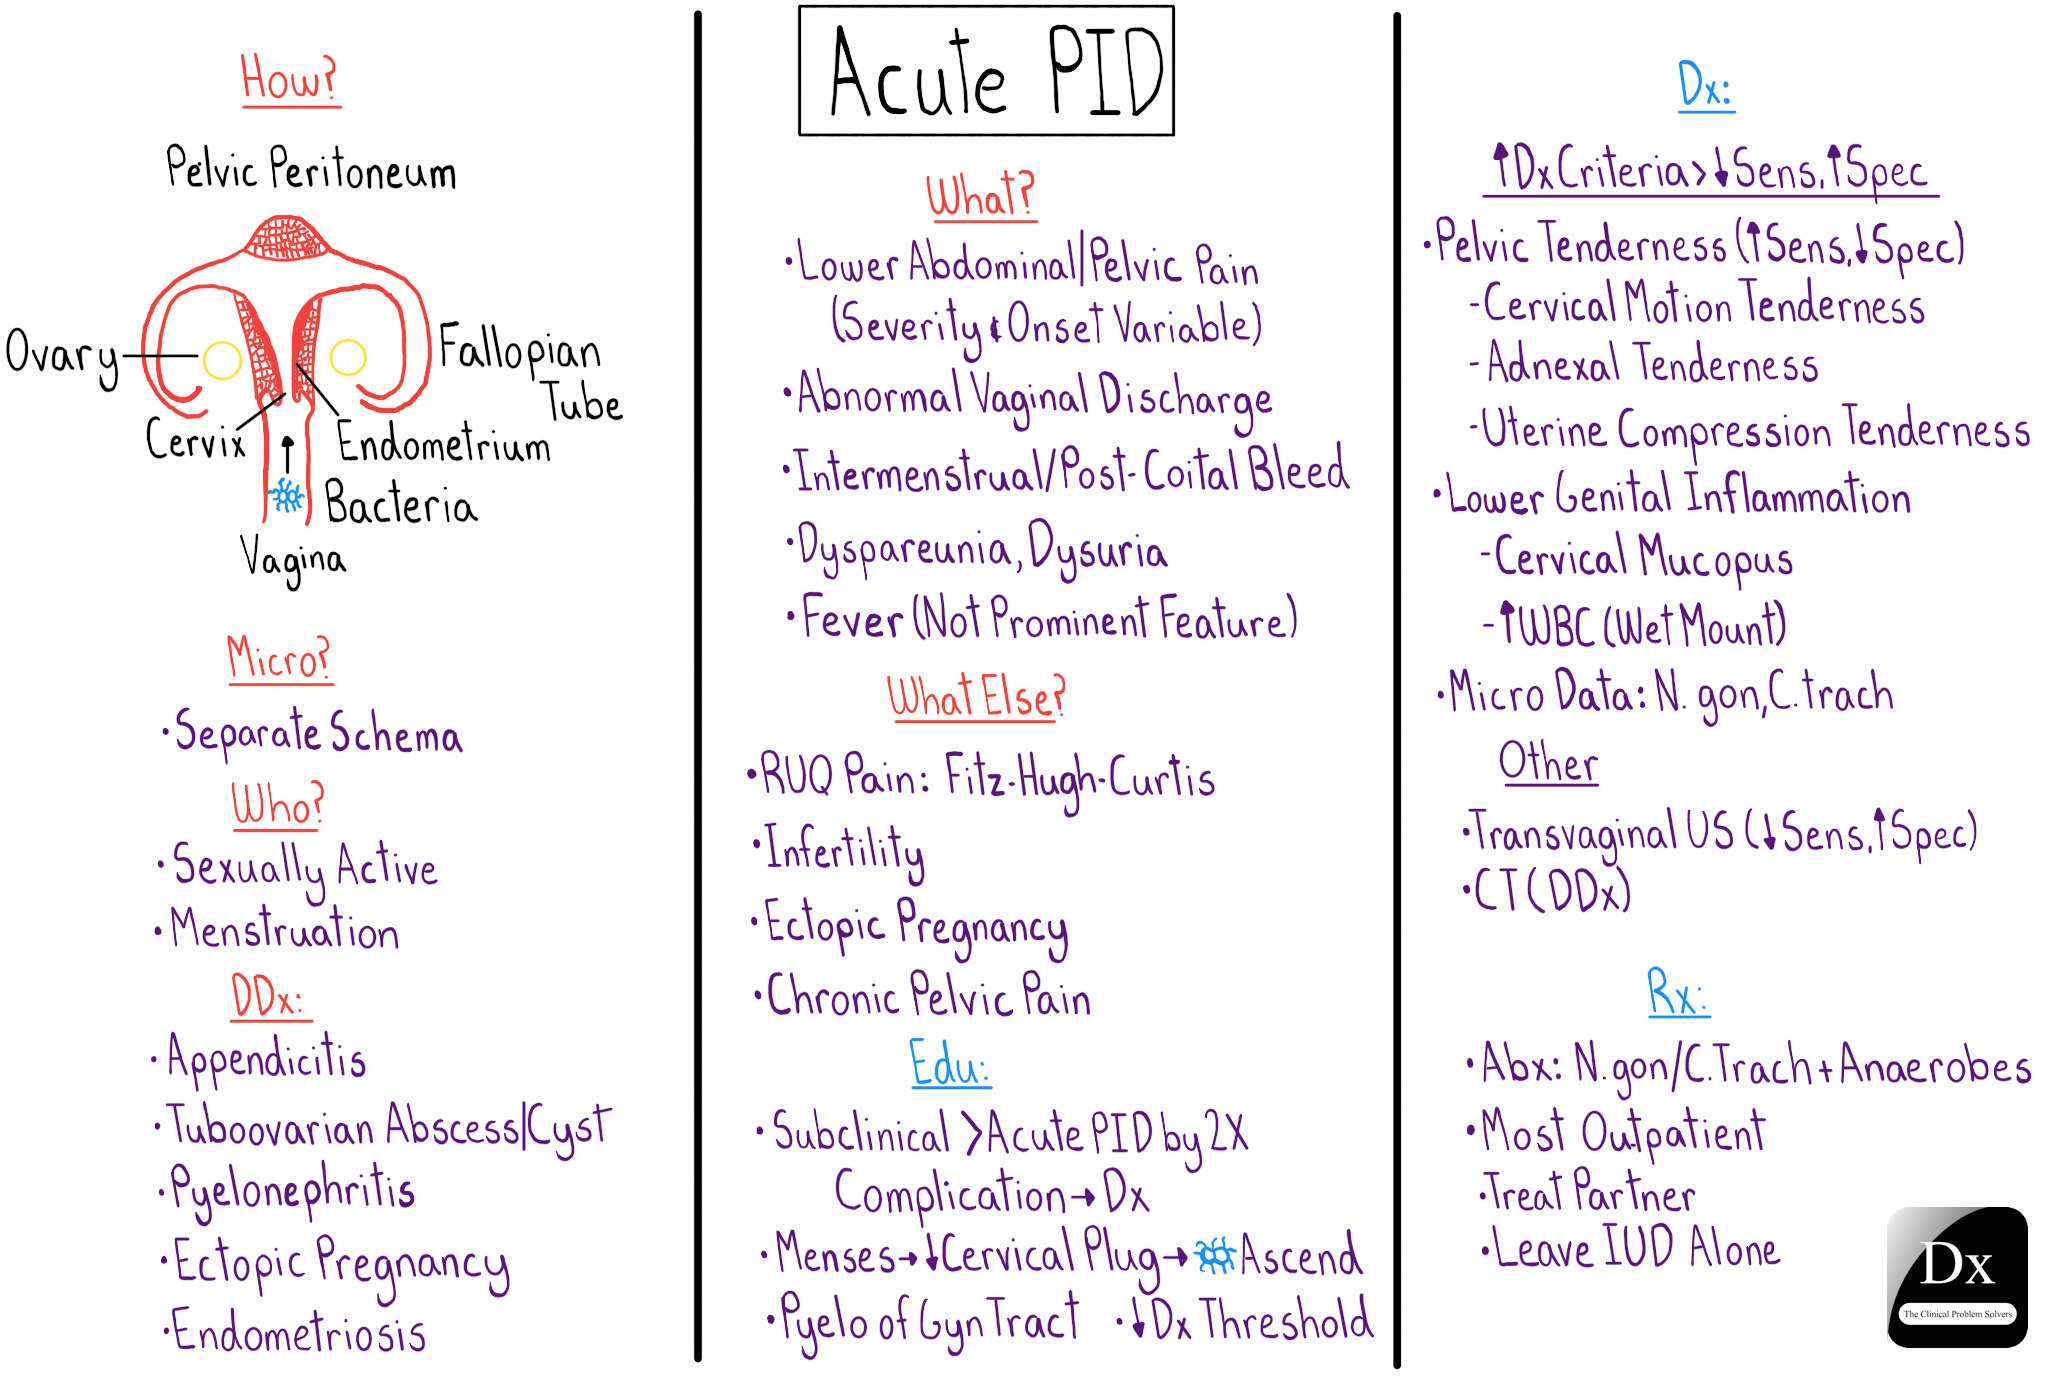 How?
Pelvic Peritoneum
Ovary
Fallopian
Tube
Cervix
Endometrium
Bacteria
Vagina
Micro?
• Separate Schema
Who?
• Sexually Active
• Menstruation
DDx:
• Appendicitis
• Tuboovarian Abscess/Cyst
• Pyelonephritis
• Ectopic Pregnancy
• Endometriosis
Acute PID
What?
• Lower Abdominal/Pelvic Pain
(Severity & Onset Variable)
• Abnormal Vaginal Discharge
• Intermenstrual/Post-Coital Bleed
• Dyspareunia, Dysuria
• Fever (Not Prominent Feature)
What Else?
• RUQ Pain: Fitz-Hugh-Curtis
• Infertility
• Ectopic Pregnancy
• Chronic Pelvic Pain
Edu:
• Subclinical > Acute PID by 2X
Complication → Dx
• Menses → ↓ Cervical Plug → Ascend
• Pyelo of Gyn Tract • ↓ Dx Threshold
Dx:
↑ Dx Criteria > ↓ Sens, ↑ Spec
• Pelvic Tenderness (↑ Sens, ↓ Spec)
- Cervical Motion Tenderness
- Adnexal Tenderness
- Uterine Compression Tenderness
• Lower Genital Inflammation
- Cervical Mucopus
- ↑ WBC (Wet Mount)
• Micro Data: N. gon, C. trach
Other
• Transvaginal US (↓ Sens, ↑ Spec)
• CT (DDx)
Rx:
• Abx: N. gon/C. Trach + Anaerobes
• Most Outpatient
• Treat Partner
• Leave IUD Alone
Dx
The Clinical Problem Solvers